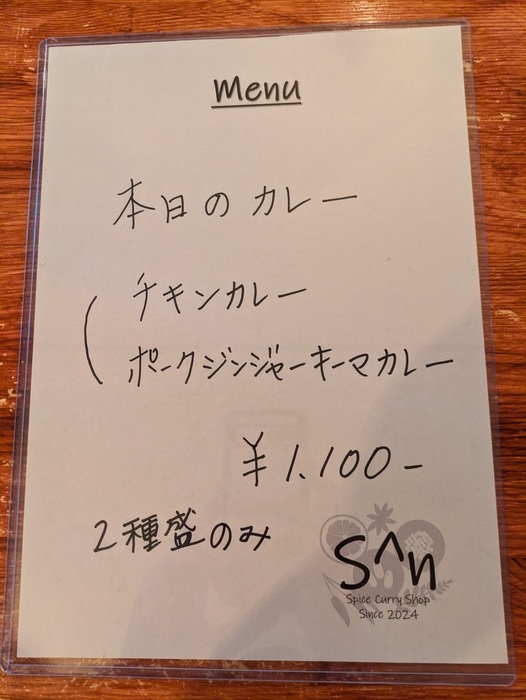 Menu
本日のカレー
チキンカレー
ポークジンジャーキーマカレー
¥1.100-
2種盛のみ
S^n
Spice Curry Shop
Since 2024